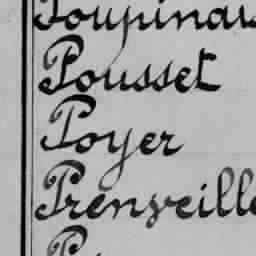 Poupinais
Pousset
Poyer
Prenveille